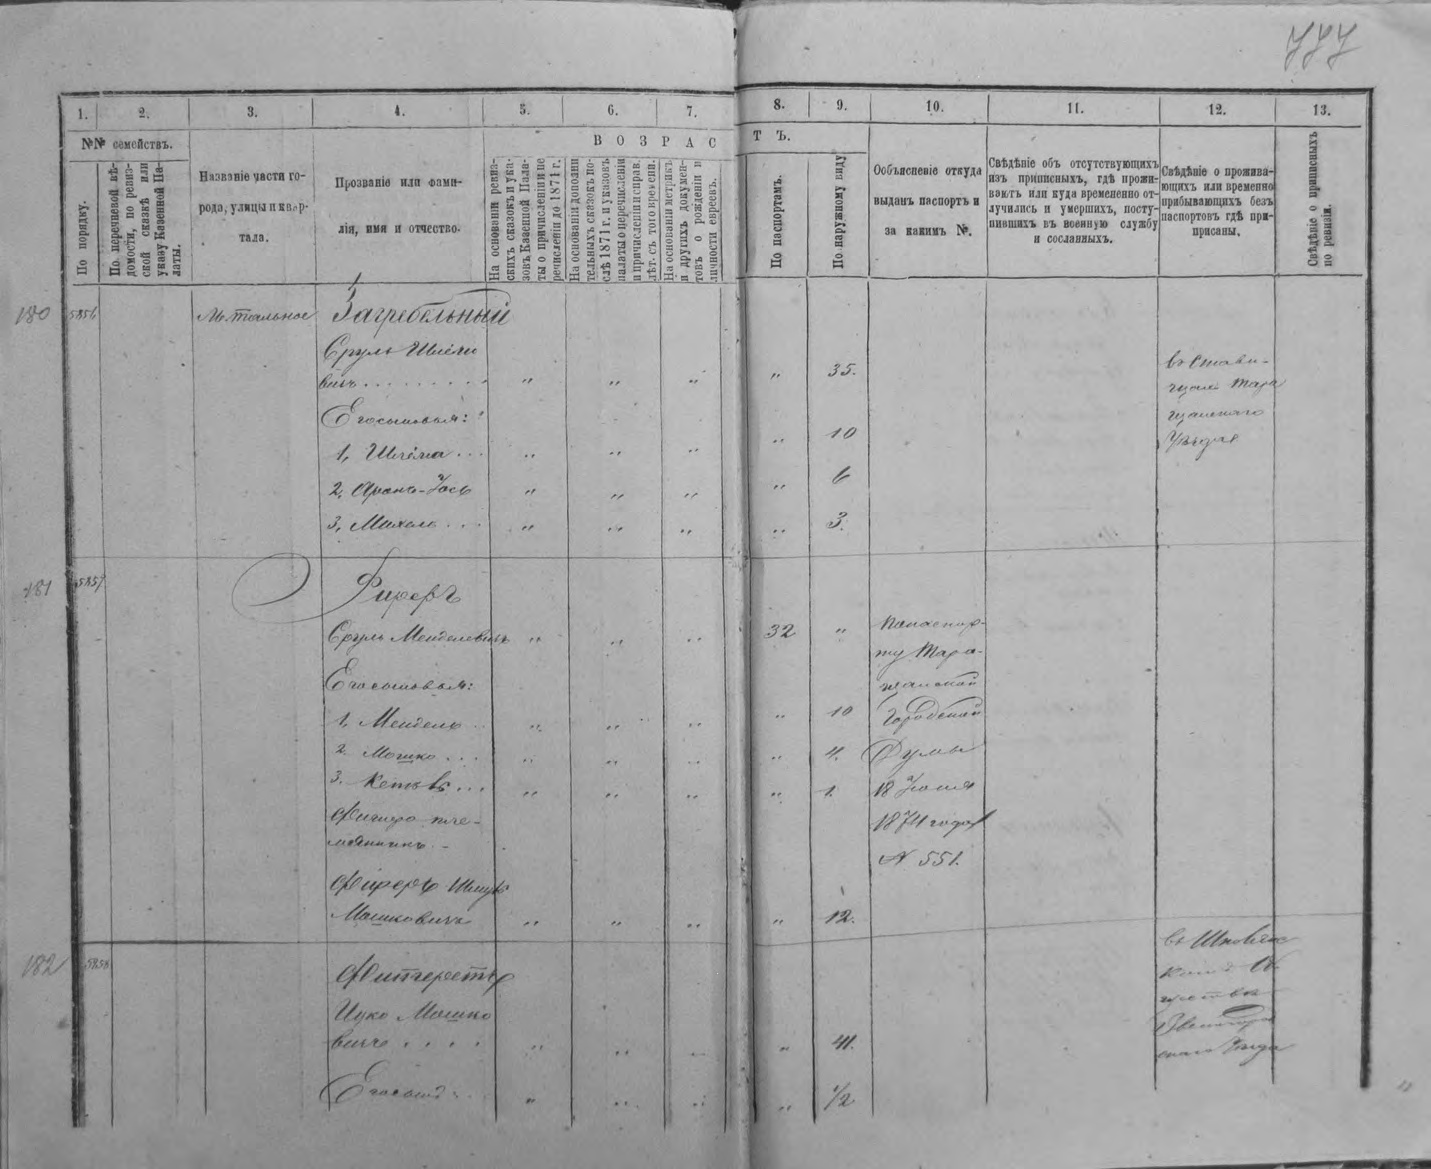 777
1. 2. 3. 4. 5. 6. 7. 8. 9. 10. 11. 12. 13.
№№ семействъ.
По порядку.
По перечневой вѣ-
домости, по ревиз-
ской сказкѣ или
указу Казенной Па-
латы.
Названіе части го-
рода, улицы и квар-
тала.
Прозваніе или фами-
лія, имя и отчество.
ВОЗРАСТЪ.
На основаніи ревиз-
скихъ сказокъ и ука-
зовъ Казенной Пала-
ты о причисленіи и пе
речисленіи до 1871 г.
На основаніи дополни
тельныхъ сказокъ по-
слѣ 1871 г. и указовъ
палаты о перечисленіи
и причисленіи и справ.
лѣт. съ того времени.
На основаніи метрикъ
и другихъ докумен-
товъ о рожденіи и
личности евреевъ.
По паспортамъ.
По наружному виду
Объясненіе откуда
выданъ паспортъ и
за какимъ №.
Свѣдѣніе объ отсутствующихъ
изъ приписныхъ, гдѣ прожи-
ваютъ или куда временно от-
лучились и умершихъ, посту-
пившихъ въ военную службу
и сосланныхъ.
Свѣдѣніе о прожива-
ющихъ или временно
прибывающихъ безъ
паспортовъ гдѣ при-
писаны.
Свѣдѣніе о приписныхъ
по ревизіи.
180 5856 Загребельный
Сруль Шлёмо
вичъ . . . . . . . . „ „ „ „ 35. въ Стави-
щахъ Тара
щанскаго
Уѣзда
Его сыновья:
1, Шлёма . . . „ „ „ „ 10
2, Аронъ-Іось „ „ „ „ 6
3, Михель . . . „ „ „ „ 3.
181 5857 Фиреръ
Сруль Менделевичъ „ „ „ 32 „ По паспор-
ту Тара-
щанской
Городской
Думы
18 Іюля
1874 года
№ 551.
Его сыновья:
1, Мендель „ „ „ „ 10
2. Мошко . . . „ „ „ „ 4.
3. . . . „ „ „ „ 1.
племянникъ
Мошковичъ „ „ „ „ 12.
182 5858
Ицко Мошко
вичъ . . . . „ „ „ „ 41.
Его сынъ . . „ „ „ „ 1/2